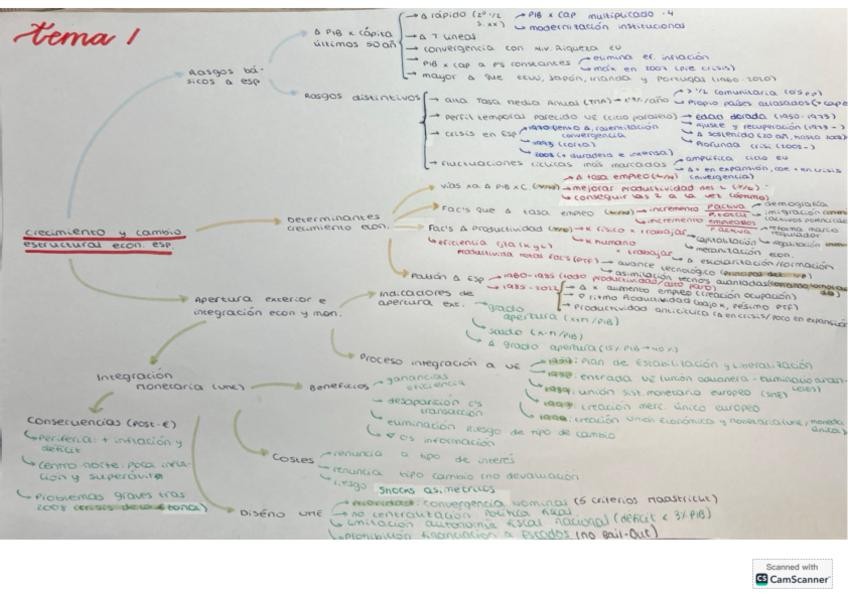 tema 1
Rasgos bá-
sicos Δ esp
Δ PIB x cápita
últimos 50 añ
Δ rápido (2º 1/2
s.xx)
PIB x cap multiplicado · 4
modernización institucional
Δ 7 líneas
convergencia con niv. riqueza EU
PIB x cap a PS constantes
elimina ef. inflación
máx en 2007 (pre crisis)
mayor Δ que EEUU, Japón, Irlanda y Portugal (1960-2020)
Rasgos distintivos
alta tasa media anual (TMA)
perfil temporal parecido UE (ciclo
edad dorada (1950-1975)
ajuste y recuperación (1975-)
Δ sostenido (20 añ, hasta 2008)
profunda crisis (2008-)
crisis en Esp
convergencia
1993 (corta)
2008 (+ duradera e intensa)
fluctuaciones cíclicas más marcadas
amplifica ciclo EU
Δ + en expansión, cae + en crisis
crecimiento y cambio
estructural econ. esp.
Determinantes
crecimiento econ.
vías xa Δ PIB x C.
Δ tasa empleo
(convergencia)
mejorar productividad del L
conseguir las 2 a la vez
Fac's que Δ tasa empleo
incremento
P.activa
P.total
demografía
inmigración
incremento
empleados
P.activa
reforma marco
regulador
Fac's Δ productividad
K físico x trabajador
capitalización
mecanización econ.
K humano
x trabajador
Δ escolarización/formación
eficiencia
productividad total facs (PTF)
avance
tecnológico
asimilación tecnos avanzadas
Patrón Δ Esp
1960-1985 (todo productividad/alto paro)
1985-2022
Δ x aumento empleo (creación ocupación)
ritmo productividad (bajo K, pésimo PTF)
productividad anticíclica (Δ en crisis/poco en expansión
Apertura exterior e
integración econ y mon.
Indicadores de
apertura ext.
grado
apertura
(x+m/PIB)
saldo (x-m/PIB)
Δ grado apertura (15% PIB → 40%)
Proceso integración a UE
1959: Plan de Estabilización y Liberalización
entrada UE (unión aduanera - eliminación aran-
celes)
1989: unión sist. monetario europeo (SME)
creación merc. único europeo
creación Unión Económica y Monetaria (UME, moneda
única)
Integración
monetaria (UME)
Beneficios
ganancias
eficiencia
desaparición cs
transacción
eliminación riesgo de tipo de cambio
cs información
Costes
renuncia a tipo de interés
renuncia tipo cambio (no devaluación
riesgo shocks asimétricos
Consecuencias (post-€)
Periferia: + inflación y
déficit
Centro-norte: poca infla-
ción y superávits
Problemas graves tras
2008
Diseño UME
prioridad: convergencia nominal (5 criterios Maastricht)
no centralización política fiscal
limitación autonomía fiscal nacional (déficit < 3% PIB)
prohibición financiación a Estados (no Bail-Out)
Scanned with
CS CamScanner